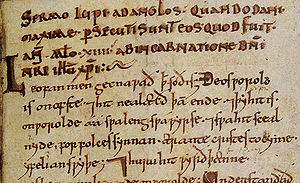 SERMO LUPI AD ANGLOS. QUANDO DANI
MAXIME. PSECUTI SUNT EOS QUOD FUIT.
XIIII. AB INCARNATIONE DN̄I
NRI IHU XPI;
Leofan men gecnapað ꝥ soð is. Ðeos ƿorold
is on ofste. ⁊ hit nealæcð þa ende. ⁊ þy hit is
on ƿorolde aa sƿa leng sƿa ƿyrse. ⁊ sƿa hit sceal
nyde. for folces synnan. ær antecristes tocyme
yfelian sƿyþe. ⁊ huru hit ƿyrð þænne
ƿorolde. Understandað